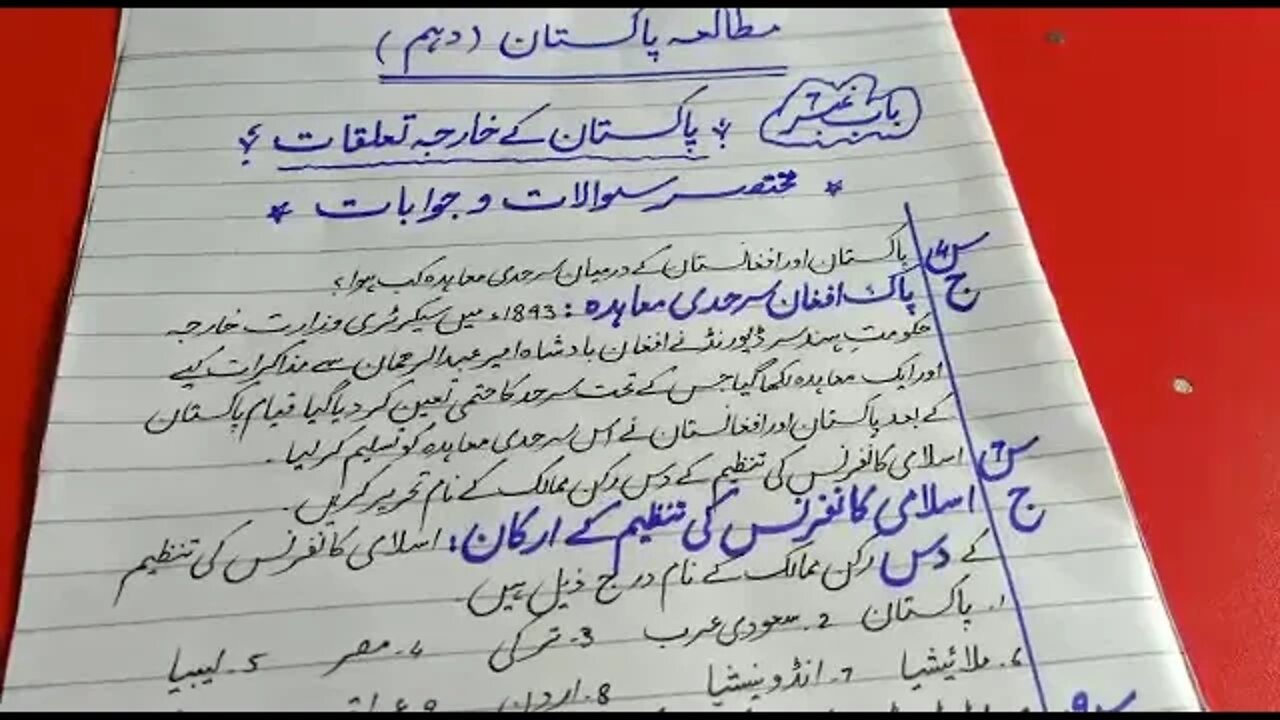 مطالعہ پاکستان (دہم)
باب نمبر 7
پاکستان کے خارجہ تعلقات
* مختصر سوالات و جوابات *
س4 پاکستان اور افغانستان کے درمیان سرحدی معاہدہ کب ہوا؟
ج پاک افغان سرحدی معاہدہ: 1893ء میں سیکرٹری وزارت خارجہ
حکومتِ ہند سر ڈیورنڈ نے افغان بادشاہ امیر عبدالرحمان سے مذاکرات کیے
اور ایک معاہدہ لکھا گیا جس کے تحت سرحد کا حتمی تعین کر دیا گیا قیام پاکستان
کے بعد پاکستان اور افغانستان نے اس سرحدی معاہدہ کو تسلیم کر لیا۔
س7 اسلامی کانفرنس کی تنظیم کے دس رکن ممالک کے نام تحریر کریں۔
ج اسلامی کانفرنس کی تنظیم کے ارکان: اسلامی کانفرنس کی تنظیم
کے دس رکن ممالک کے نام درج ذیل ہیں۔
1۔ پاکستان 2۔ سعودی عرب 3۔ ترکی 4۔ مصر 5۔ لیبیا
6۔ ملائیشیا 7۔ انڈونیشیا 8۔ اردن 9۔ عراق
س9